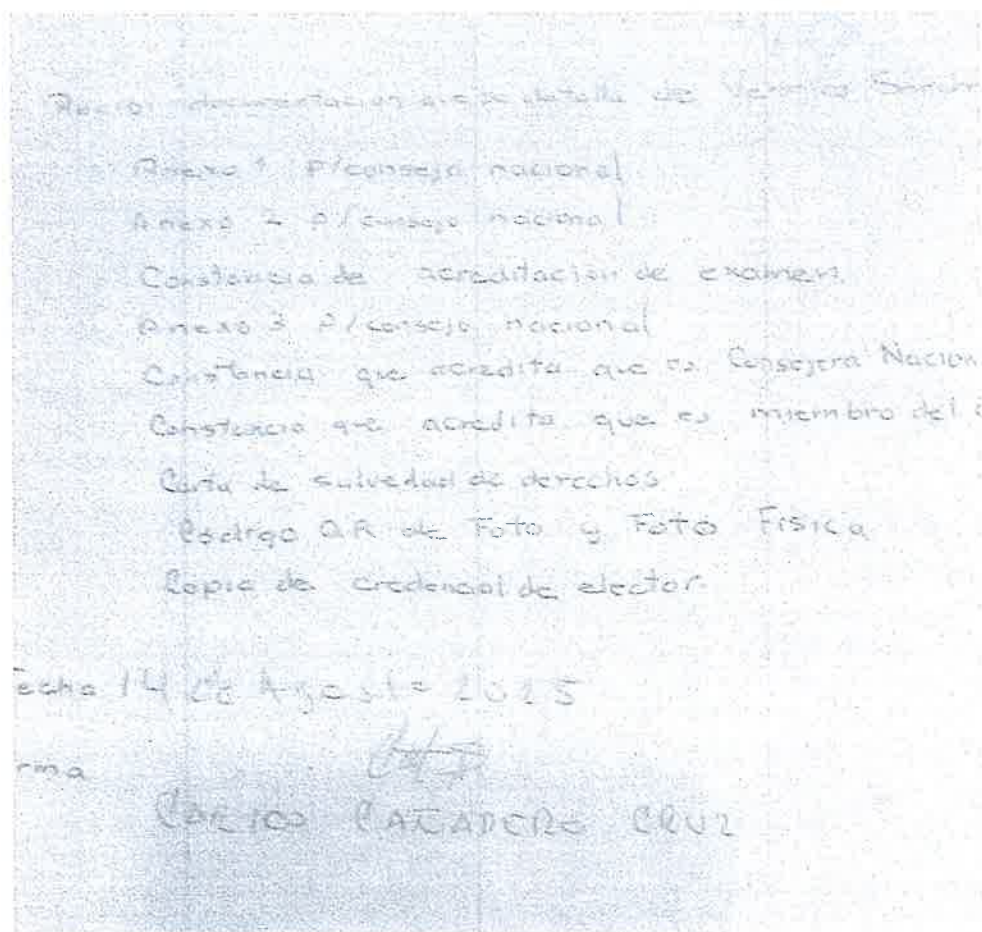 documentación que se detalla de
Anexo 1 P/consejo nacional
Anexo 2 P/consejo nacional
Constancia de acreditación de examen.
Anexo 3 P/consejo nacional
Constancia que acredita que es Consejera Nacion
Constancia que acredita que es miembro del
Carta de salvedad de derechos.
Codigo QR de Foto y Foto Fisica
Copia de credencial de elector.
echa 14 de Agosto 2025
rma
CRUZ